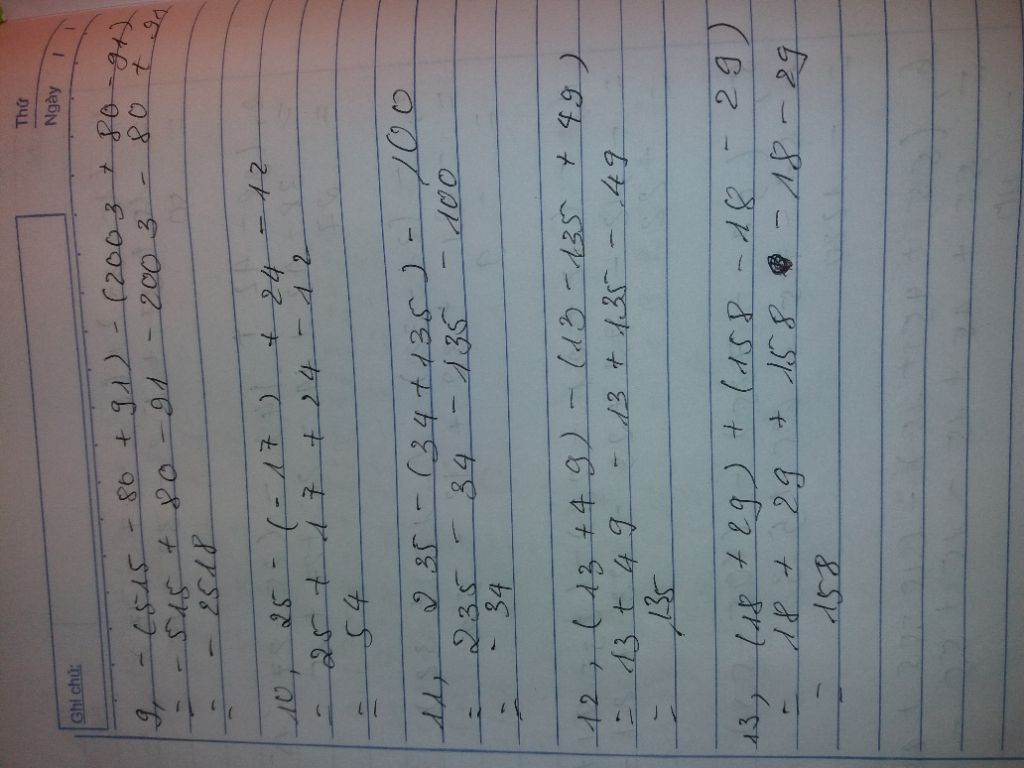 Ghi chú:
Thứ
Ngày
9, - (515 - 80 + 91) - (2003 + 80 - 91)
= - 515 + 80 - 91 - 2003 - 80 + 91
= - 2518
10, 25 - (- 17) + 24 - 12
= 25 + 17 + 24 - 12
= 54
11, 235 - (34 + 135) - 100
= 235 - 34 - 135 - 100
= - 34
12, (13 + 49) - (13 - 135 + 49)
= 13 + 49 - 13 + 135 - 49
= 135
13, (18 + 29) + (158 - 18 - 29)
= 18 + 29 + 158 - 18 - 29
= 158